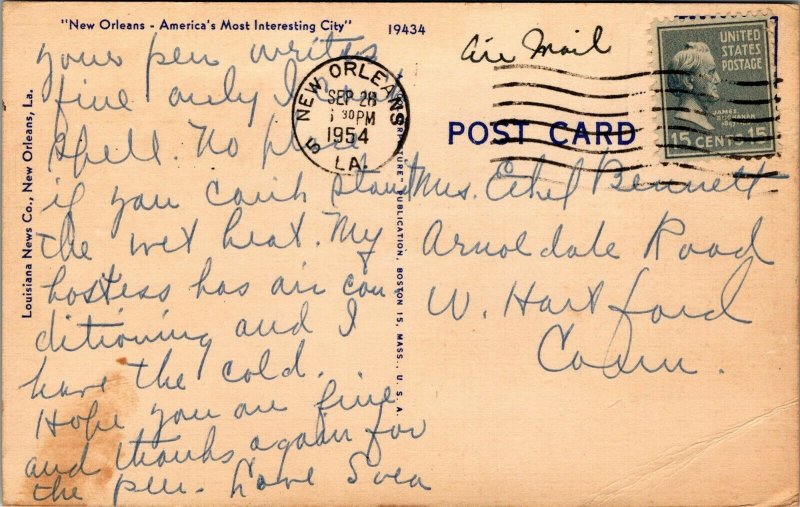 "New Orleans - America's Most Interesting City"
19434
Louisiana News Co., New Orleans, La.
your pen writes
fine only I
spell. No place
if you can't stand
the wet heat. My
hostess has air con
ditioning and I
have the cold.
Hope you are fine
and thanks again for
the pen. Love Svea
NEW ORLEANS
SEP 28
30 PM
1954
LA.
PUBLICATION, BOSTON 15, MASS., U. S. A.
Air Mail
POST CARD
UNITED
STATES
POSTAGE
JAMES
BUCHANAN
15 CENTS 15
Mrs. Ethel Bennett
Arnoldale Road
W. Hartford
Conn.